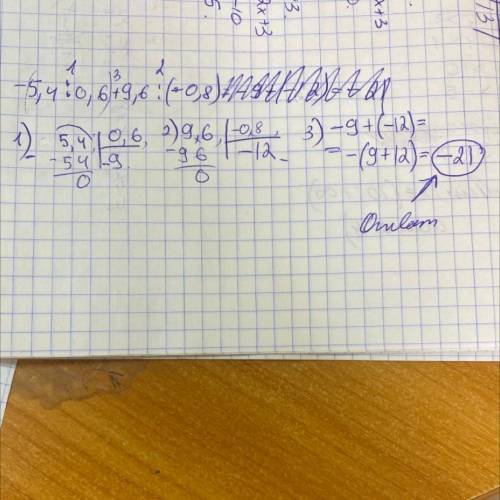 137
x+3
0.
3.
2x+3
-10
5.
1 3 2
-5,4:0,6+9,6:(-0,8)
1) 5,4 | 0,6 2) 9,6 | -0,8 3) -9+(-12)=
-54 | -9 -96 | -12 = -(9+12)= -21
0 0
Ответ